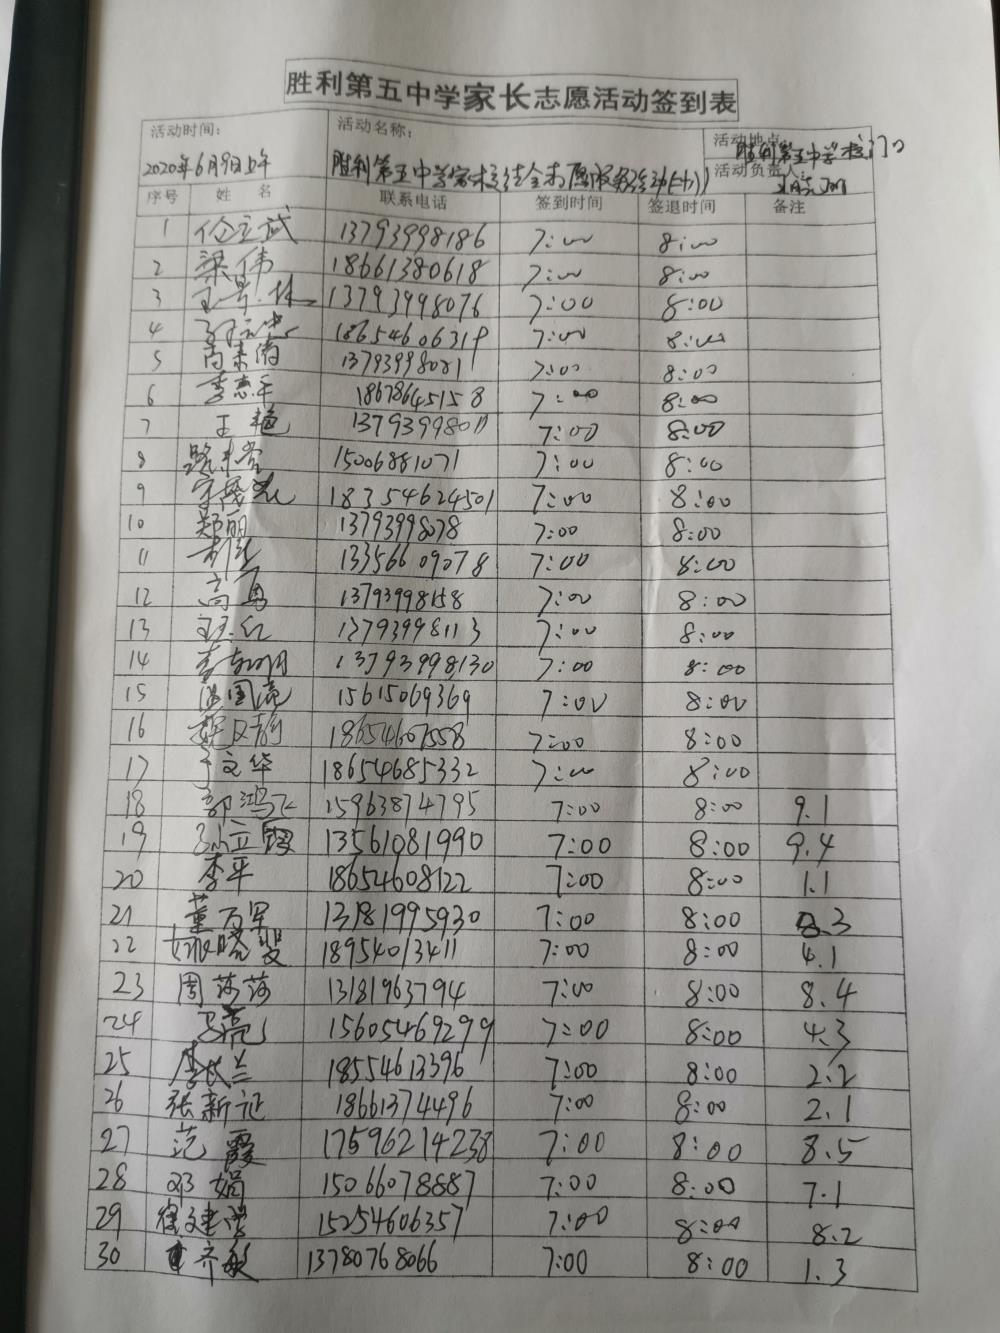 胜利第五中学家长志愿活动签到表
活动时间： 活动名称： 活动地点：
2020年6月9日上午 胜利第五中学 胜利第五中学校门口
活动负责人：
序号 姓 名 联系电话 签到时间 签退时间 备注
1 13793998186 7:00 8:00
2 梁伟 18661380618 7:00 8:00
3 13793998076 7:00 8:00
4 18654606319 7:00 8:00
5 13793998021 7:00 8:00
6 李惠平 18678645158 7:00 8:00
7 王艳 7:00 8:00
8 路来堂 15006881071 7:00 8:00
9 18354624501 7:00 8:00
10 郑丽 13793998078 7:00 8:00
11 13356609078 7:00 8:00
12 高勇 13793998158 7:00 8:00
13 13793998113 7:00 8:00
14 13793998130 7:00 8:00
15 15615069369 7:00 8:00
16 18654607558 7:00 8:00
17 于文华 18654685332 7:00 8:00
18 郭鸿飞 15963874795 7:00 8:00 9.1
19 孙立霞 13561081990 7:00 8:00 9.4
20 李平 18654608122 7:00 8:00 1.1
21 董万军 13181995930 7:00 8:00 8.3
22 姚晓斐 18954013411 7:00 8:00 4.1
23 周莎莎 13181963794 7:00 8:00 8.4
24 15605469299 7:00 8:00 4.3
25 李长兰 18554613396 7:00 8:00 2.2
26 张新征 18661374496 7:00 8:00 2.1
27 范霞 17596214238 7:00 8:00 8.5
28 邓娟 15066078887 7:00 8:00 7.1
29 15254606357 7:00 8:00 8.2
30 齐敏 13780768066 7:00 8:00 1.3